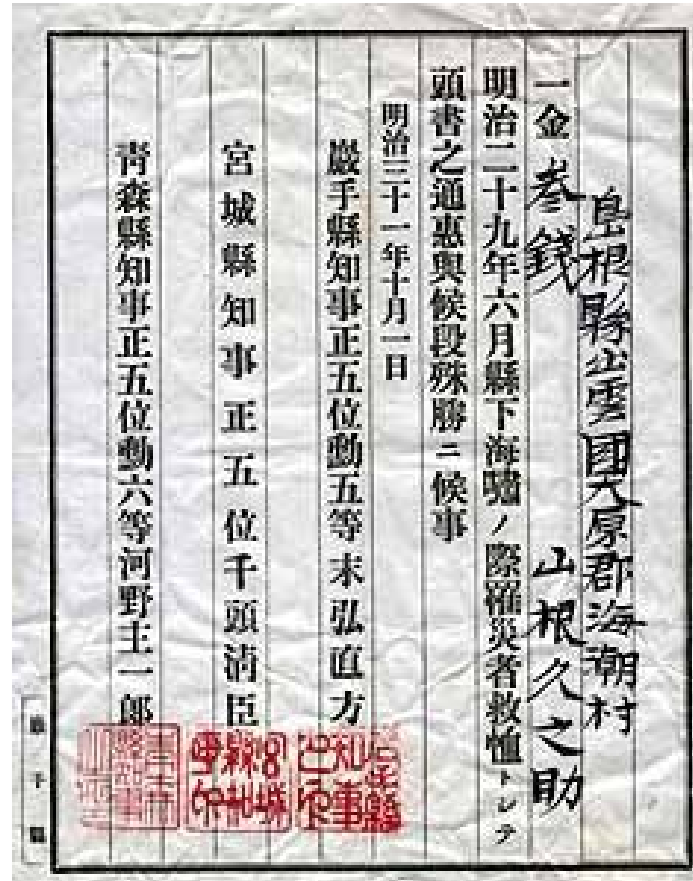 島根縣出雲國大原郡海潮村
山根久之助
一金 参錢
明治二十九年六月縣下海嘯ノ際罹災者救恤トシテ
頭書之通惠與候段殊勝ニ候事
明治三十一年十月一日
巖手縣知事正五位勳五等末弘直方
宮城縣知事正五位千頭淸臣
靑森縣知事正五位勳六等河野主一郎
巖手縣